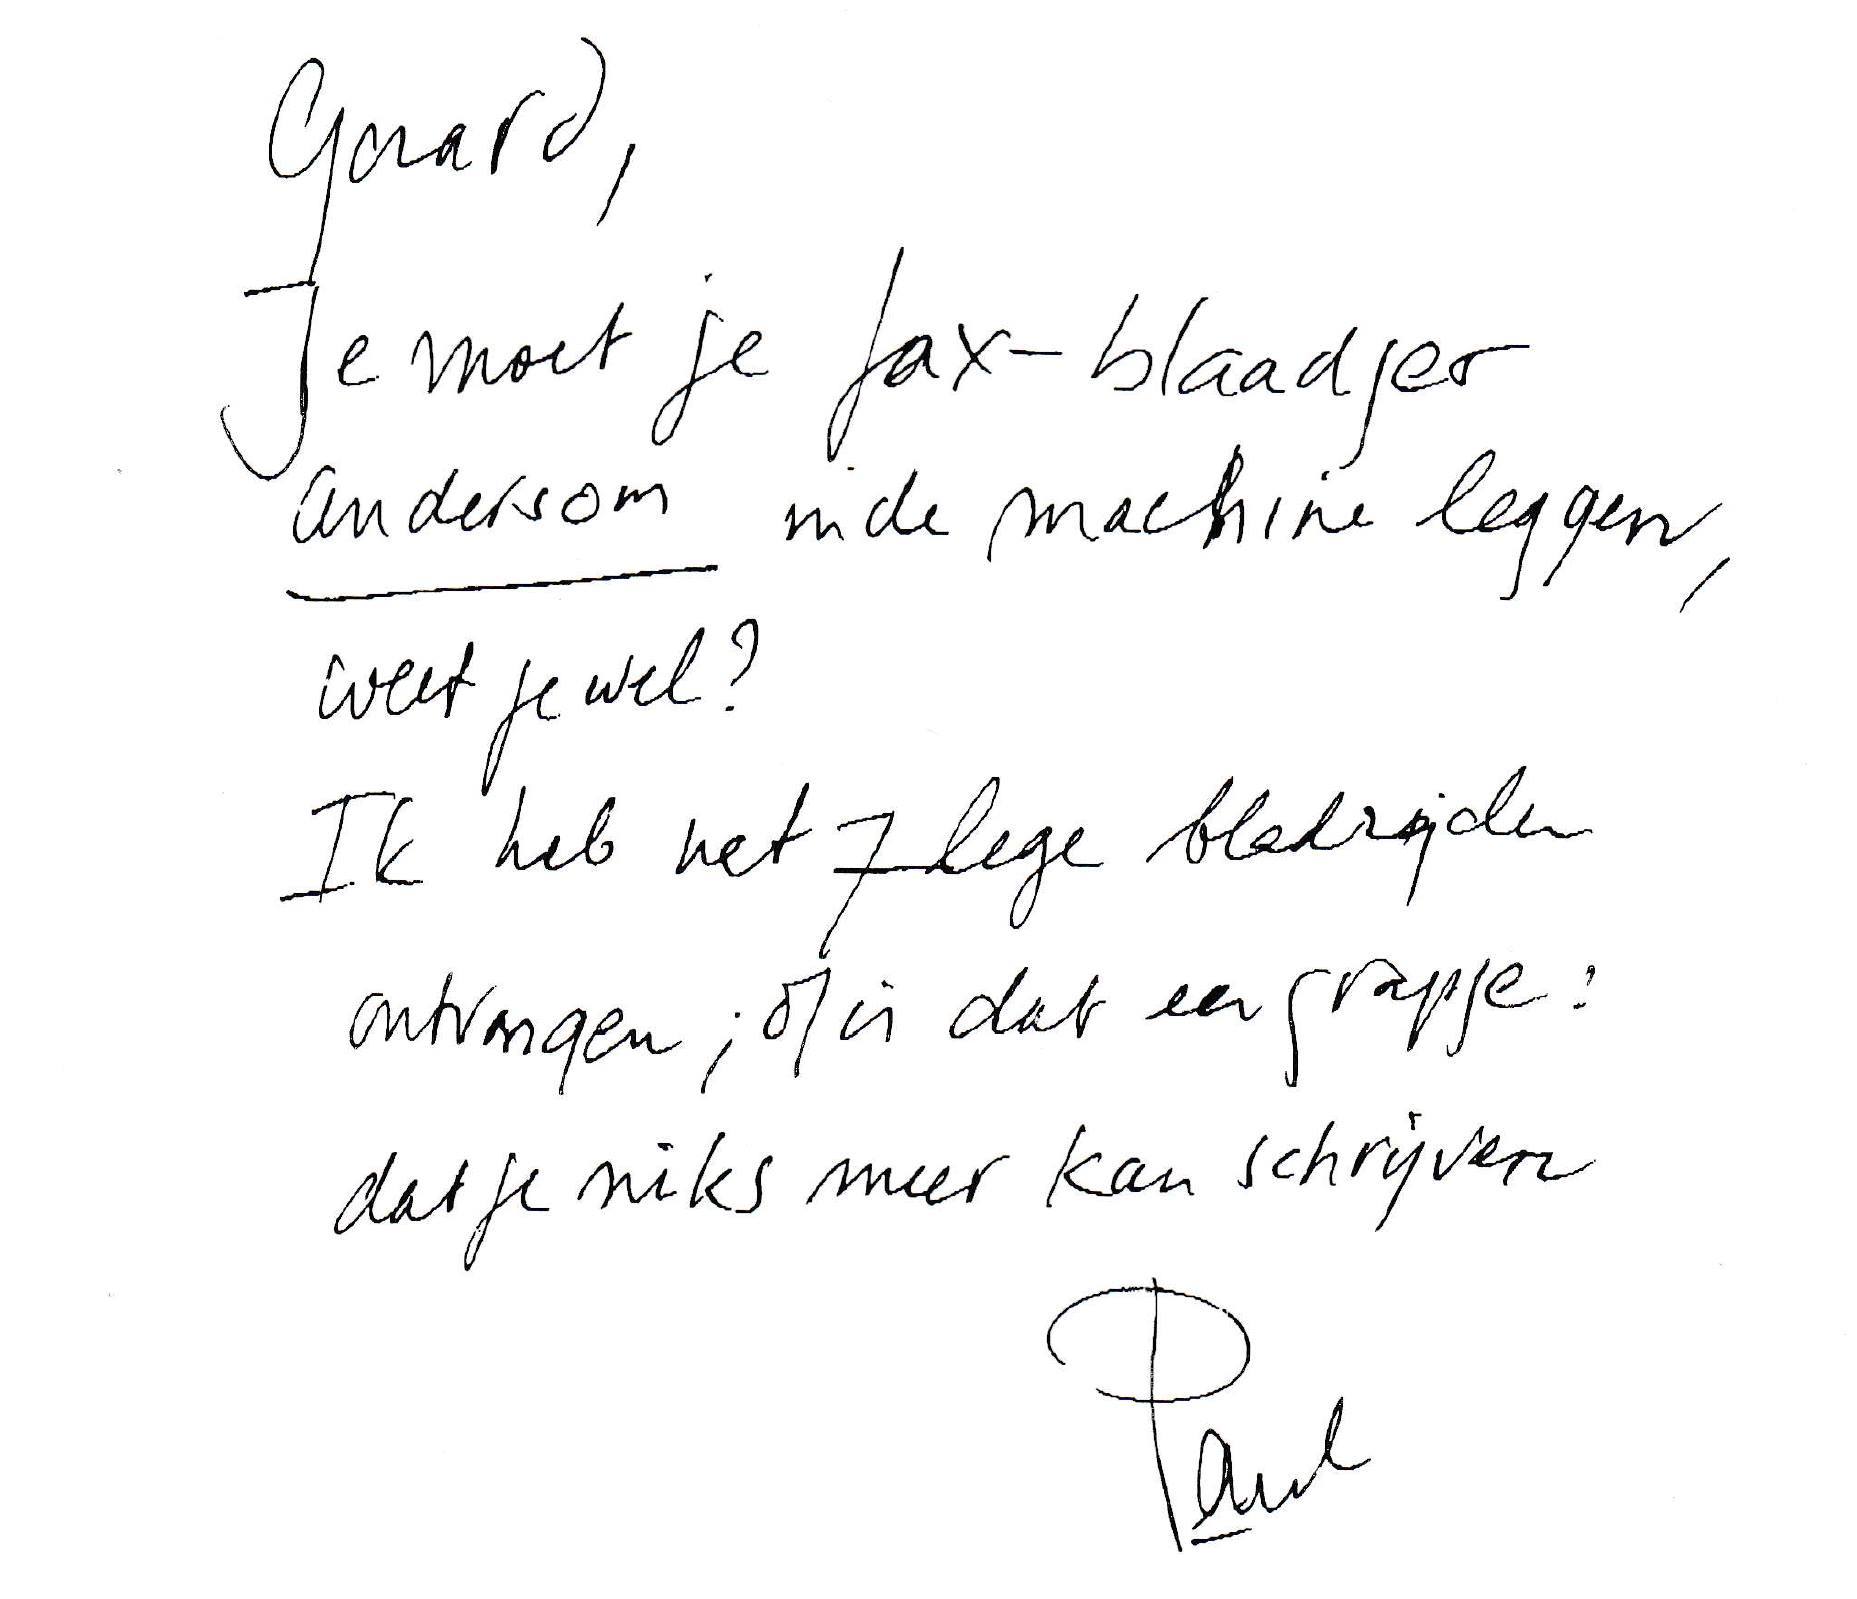 Gerard,
Je moet je fax-blaadjes
andersom in de machine leggen,
weet je wel?
Ik heb net 7 lege bladzijden
ontvangen; of is dat een grapje:
dat je niks meer kan schrijven
Paul